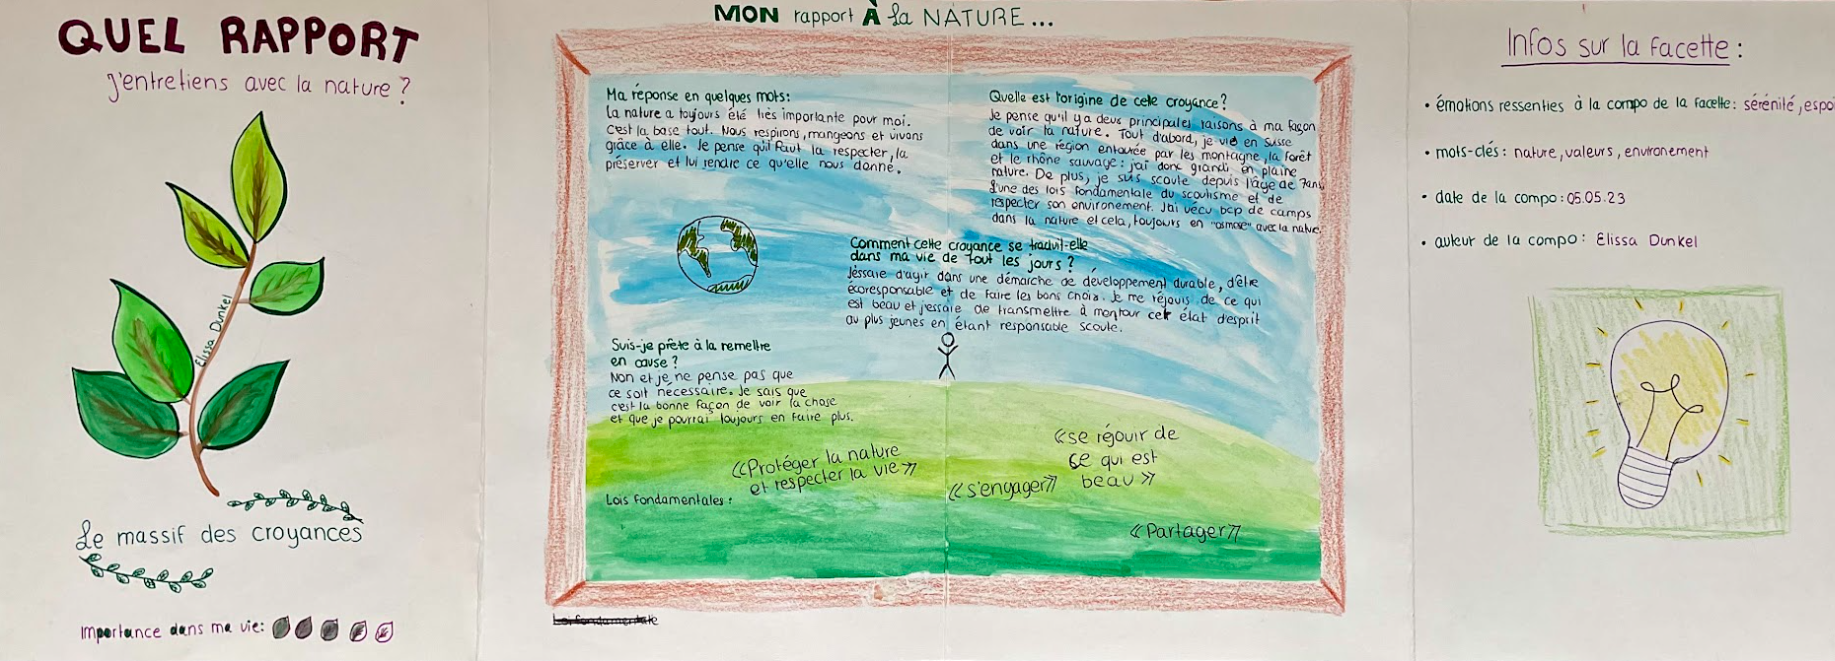 QUEL RAPPORT
j'entretiens avec la nature ?
Elissa Dunkel
Le massif des croyances
Importance dans ma vie:
MON rapport À la NATURE...
Ma réponse en quelques mots:
La nature a toujours été très importante pour moi.
C'est la base tout. Nous respirons, mangeons et vivons
grâce à elle. Je pense qu'il faut la respecter, la
préserver et lui rendre ce qu'elle nous donne.
Quelle est l'origine de cette croyance ?
Je pense qu'il y a deux principales raisons à ma façon
de voir la nature. Tout d'abord, je vis en Suisse
dans une région entourée par les montagne, la forêt
et le rhône sauvage: j'ai donc grandi en pleine
nature. De plus, je suis scoute depuis l'âge de 7ans,
l'une des lois fondamentale du scoutisme et de
respecter son environement. J'ai vécu bcp de camps
dans la nature et cela, toujours en "osmose" avec la nature.
Comment cette croyance se traduit-elle
dans ma vie de tout les jours ?
J'éssaie d'agir dans une démarche de développement durable, d'être
écoresponsable et de faire les bons choix. Je me réjouis de ce qui
est beau et j'essaie de transmettre à montour cet état d'esprit
au plus jeunes en étant responsable scoute.
Suis-je prête à la remettre
en cause ?
Non et je ne pense pas que
ce soit nécessaire. Je sais que
c'est la bonne façon de voir la chose
et que je pourrai toujours en faire plus.
«Protéger la nature
et respecter la vie»
«se réjouir de
ce qui est
beau»
«s'engager»
Lois fondamentales:
«Partager»
Loi fondamentale
Infos sur la facette :
• émotions ressenties à la compo de la facette: sérénité, espoi
• mots-clés: nature, valeurs, environement
• date de la compo: 05.05.23
• auteur de la compo: Elissa Dunkel